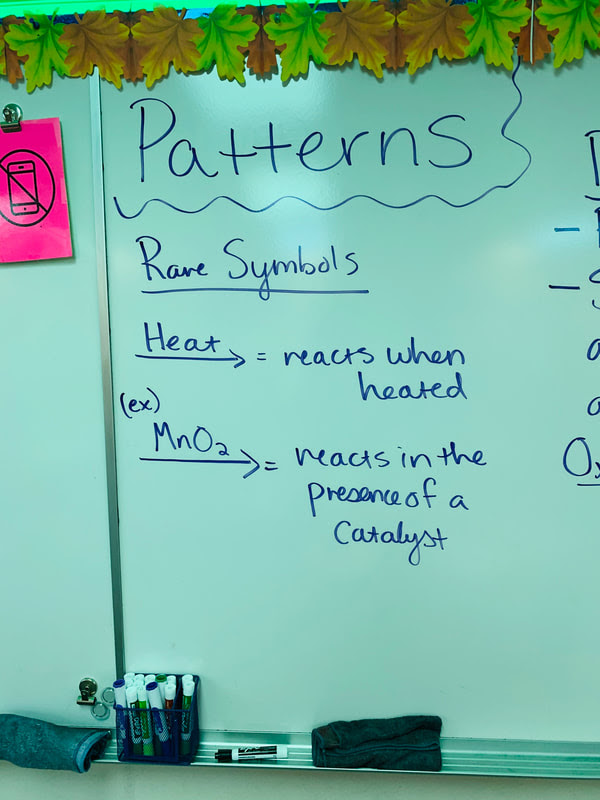 Patterns
Rare Symbols
Heat = reacts when
heated
(ex)
MnO₂ = reacts in the
presence of a
Catalyst